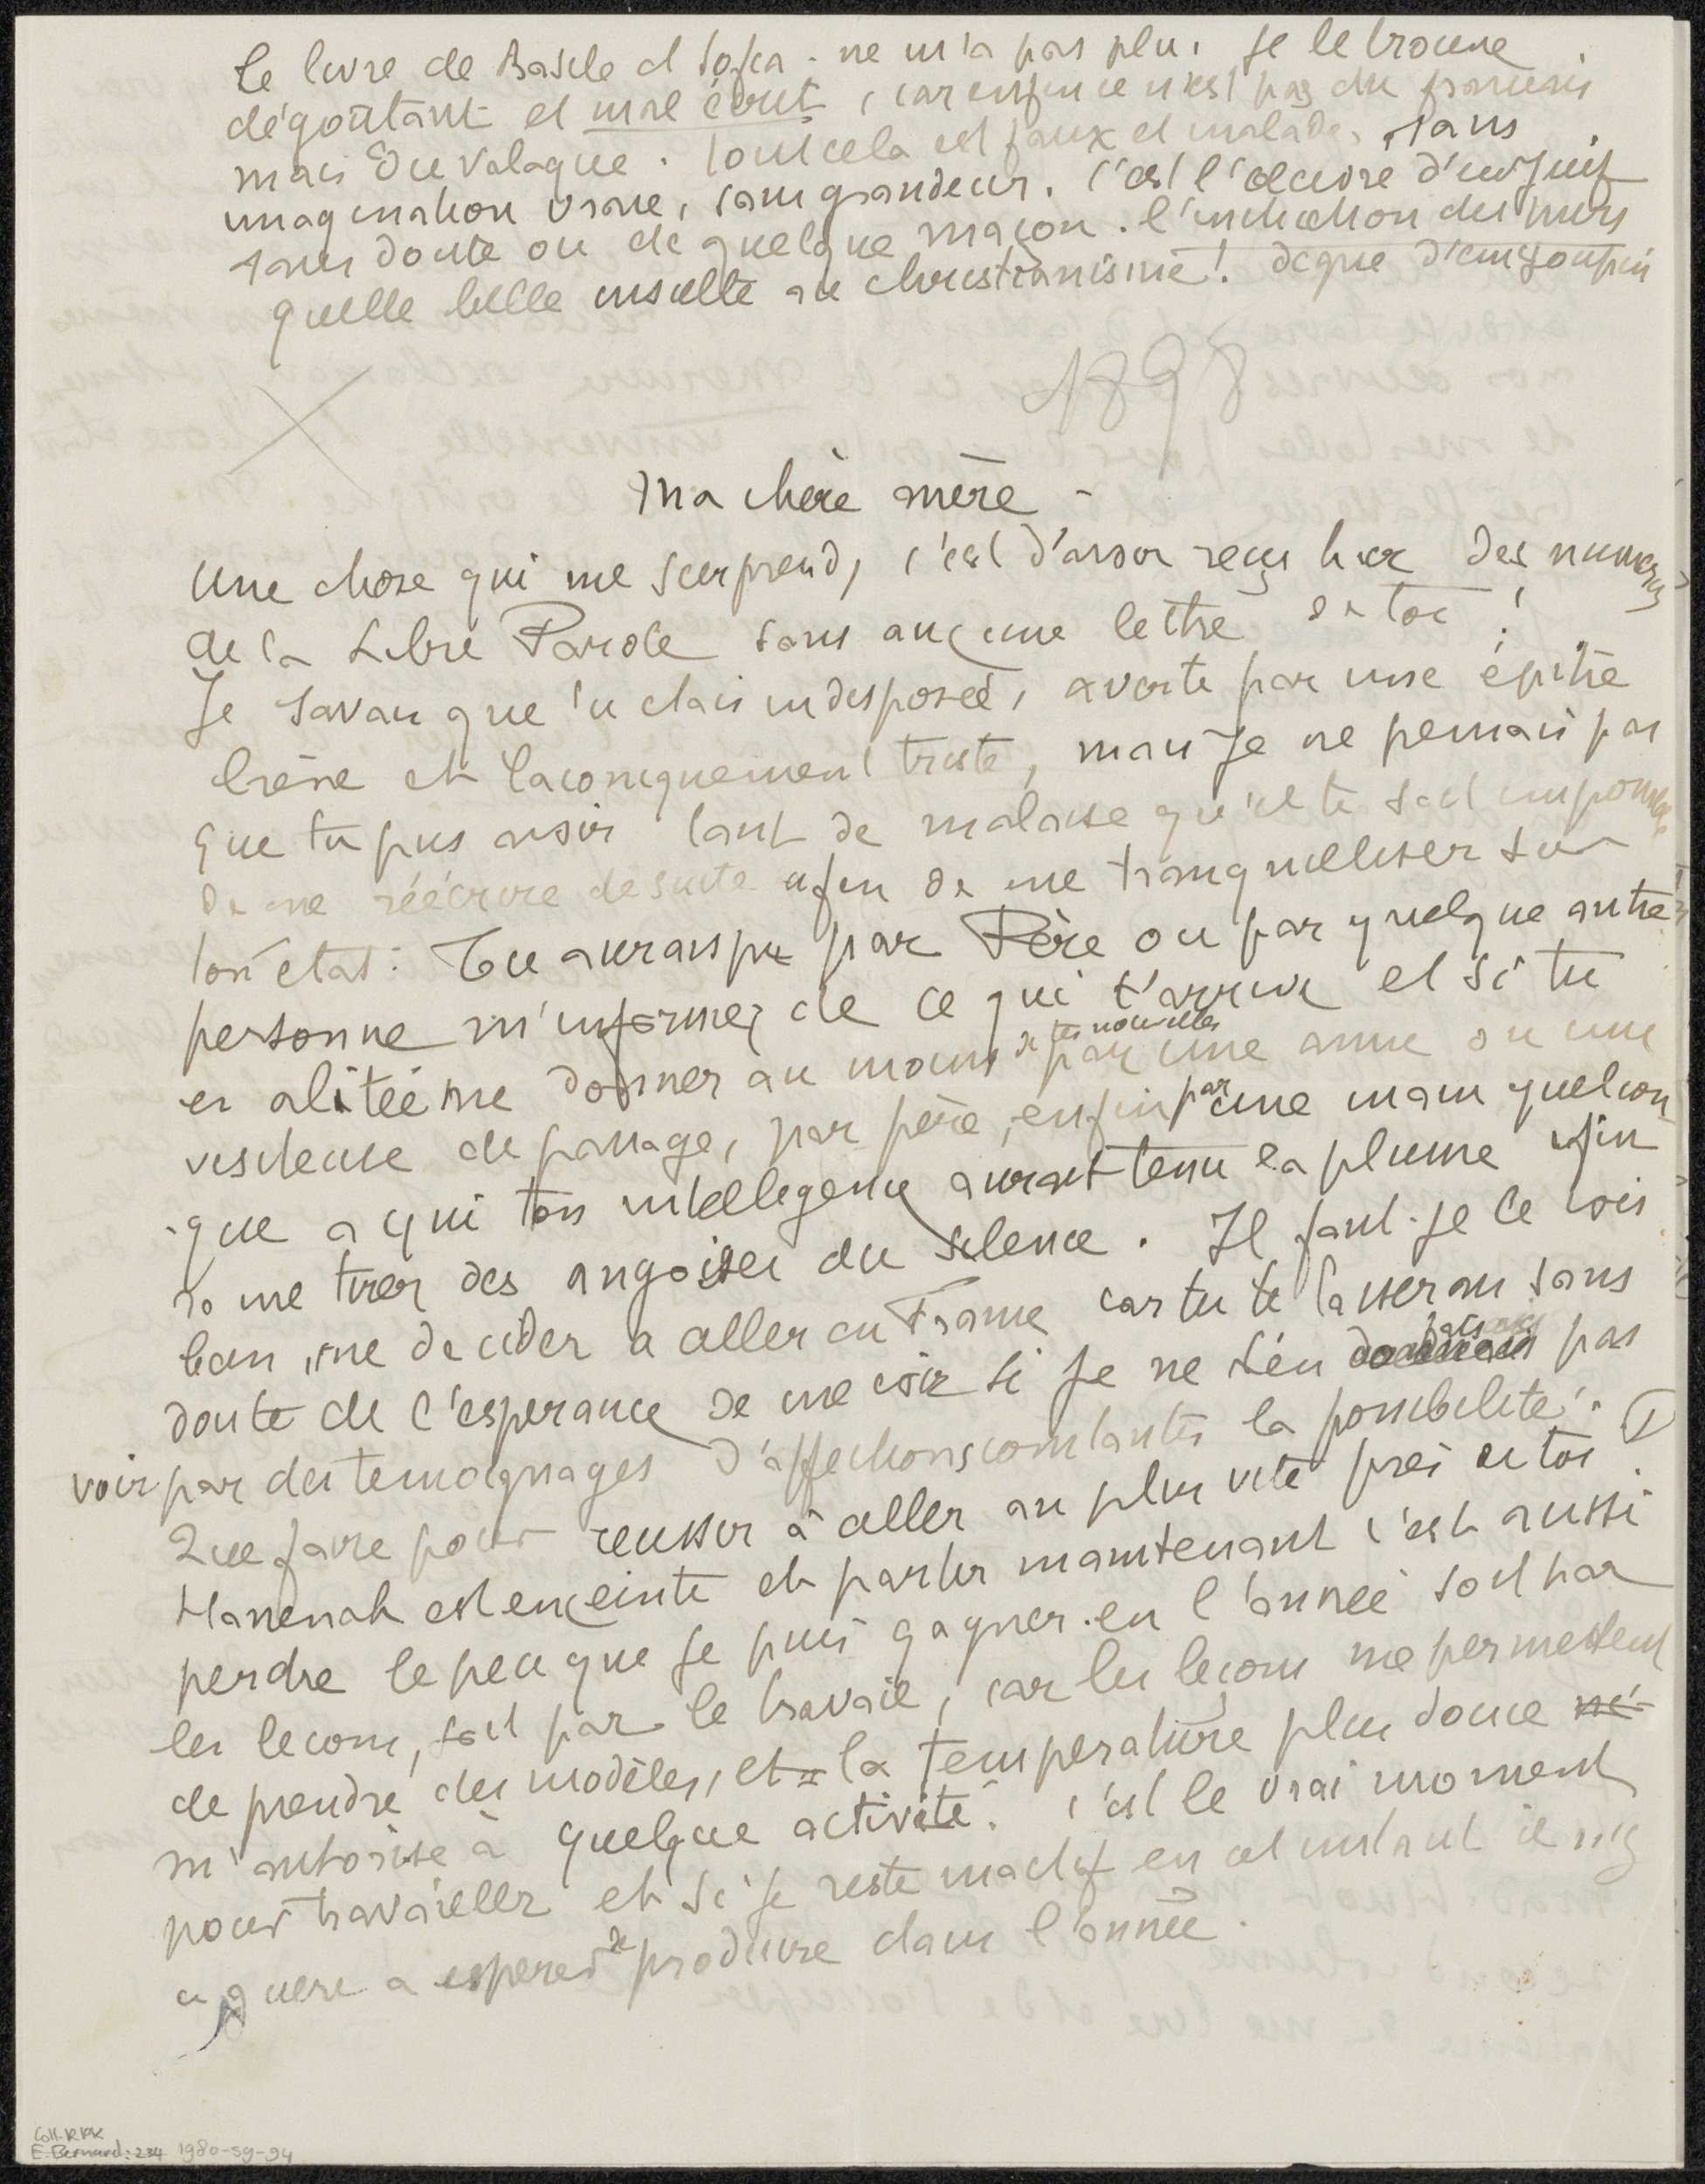 Le livre de Basile et Sofia. ne m'a pas plu. Je le trouve
dégoûtant et mal écrit, car enfin ce n'est pas du francais
mais du valaque. Tout cela est faux et malade, sans
imagination vraie, sans grandeur. C'est l'œuvre d'un Juif
sans doute ou de quelque maçon. l'initiation des murs
quelle belle insulte au christianisme! digne d'un youpin
1898
Ma chère mère -
Une chose qui me surprend, c'est d'avoir reçu hier des numeros
de la Libre Parole sans aucune lettre de toi !
Je savais que tu etais indisposée, averti par une épitre
brève et laconiquement triste, mais je ne pensais pas
que tu pus avoir tant de malaise qu'il te soit impossible
de me réécrire de suite afin de me tranquilliser sur
ton état. Tu aurais pu par Père ou par quelque autre
personne m'informer de ce qui t'arrive et si tu
es alitée me donner au moins de tes nouvelles par une amie ou une
visiteuse de passage, par père, enfin par une main quelcon
-que a qui ton intelligence aurait tenu la plume afin
de me tirer des angoisses du silence. Il faut je le vois
bien, me decider a aller en France car tu te lasserais sans
doute de l'esperance de me voir si je ne t'en fais pas
voir par des temoignages d'affections constantes la possibilité. (1)
Que faire pour reussir à aller au plus vite près de toi ?
Hanenah est enceinte et partir maintenant c'est aussi
perdre le peu que je puis gagner en l'année soit par
les lecons, soit par le travail, car les leçons me permettent
de prendre des modèles, et la temperature plus douce
m'autorise à quelque activité. C'est le vrai moment
pour travailler et si je reste inactif en cet instant il n'y
a guere a esperer de produire dans l'année.
Coll. RPK
E. Bernard: 234 1980-sg-94